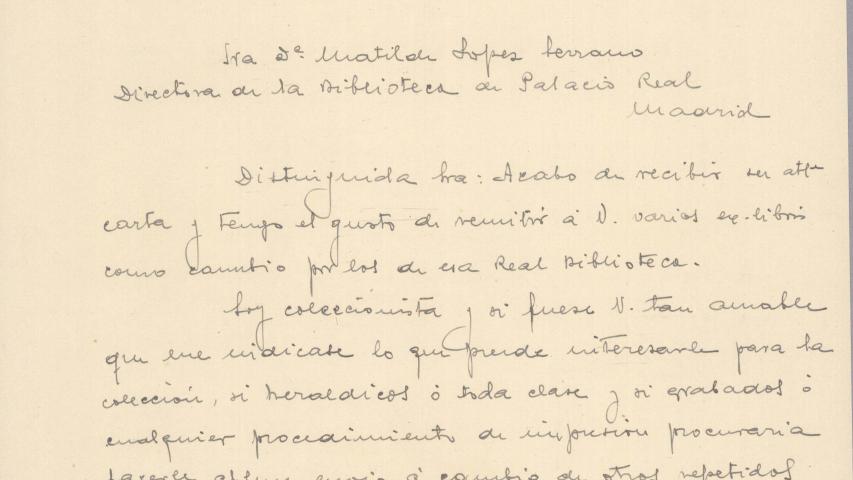 Sra Dª Matilde Lopez Serrano
Directora de la Biblioteca de Palacio Real
Madrid
Distinguida Sra: Acabo de recibir su attª
carta y tengo el gusto de remitir á V. varios ex-libris
como cambio por los de esa Real Biblioteca.
Soy coleccionista y si fuese V. tan amable
que me indicase lo que puede interesarle para la
colección, si heraldicos ó toda clase y si grabados ó
cualquier procedimiento de impresión procuraria
hacerle algun envio á cambio de otros repetidos